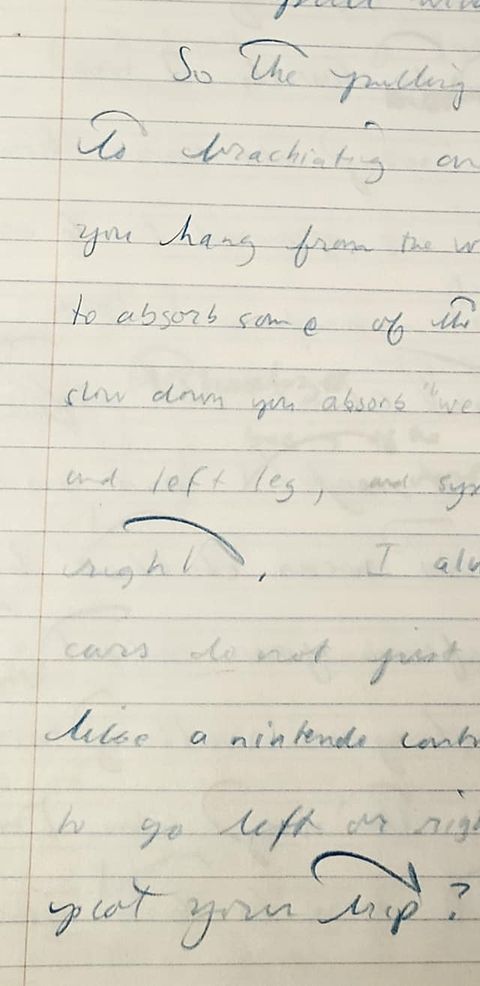 So The pulling
To brachiating on
you hang from the w
to absorb some of the
slow down you absorb "we
and left leg, and sys
right, I alw
cars do not just
like a nintendo contr
to go left or righ
your trip?